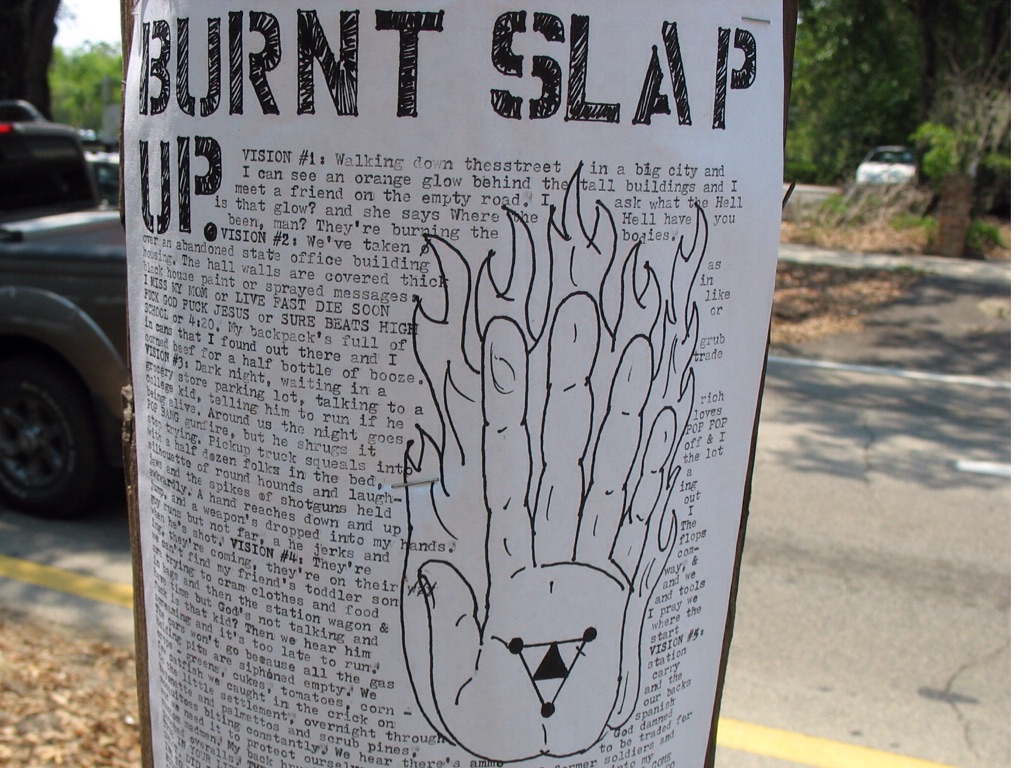 BURNT SLAP
UP.
VISION #1: Walking down thesstreet in a big city and
I can see an orange glow behind the tall buildings and I
meet a friend on the empty road. I ask what the Hell
is that glow? and she says Where the Hell have you
been, man? They're burning the bogies.
VISION #2: We've taken
over an abandoned state office building as
housing. The hall walls are covered thick in
black house paint or sprayed messages. like
I MISS MY MOM or LIVE FAST DIE SOON or
FUCK GOD FUCK JESUS or SURE BEATS HIGH
SCHOOL or 4:20. My backpack's full of grub
in cans that I found out there and I trade
corned beef for a half bottle of booze.
VISION #3: Dark night, waiting in a
grocery store parking lot, talking to a rich
college kid, telling him to run if he loves
being alive. Around us the night goes POP POP
POP BANG gunfire, but he shrugs it off & I
stop trying. Pickup truck squeals into the lot
with a half dozen folks in the bed, a
silhouette of round hounds and laugh- ing
jaws and the spikes of shotguns held out
skywardly. A hand reaches down and up I
go, and a weapon's dropped into my hands. The
runs but not far, a he jerks and flops
he's shot. VISION #4: They're com-
they're coming, they're on their way, &
can't find my friend's toddler son and we
trying to cram clothes and food and tools
bags and then the station wagon & I pray we
time but God's not talking and where the
is that kid? Then we hear him start
and it's too late to run. VISION #5:
cars won't go because all the gas station
pits are siphoned empty. We carry
greens, cukes, tomatoes, corn - and the
catfish we caught in the crick on our backs
the little settlement, overnight through spanish
and palmettos and scrub pines. God damned
biting constantly. We hear there's ammo to be traded for
need it to protect ourselves former soldiers and
madmen. My back into my
overalls.